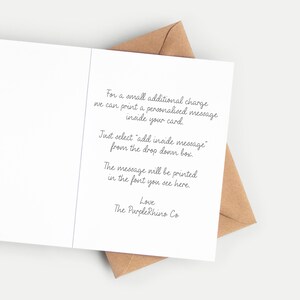 For a small additional charge
we can print a personalised message
inside your card.
Just select "add inside message"
from the drop down box.
The message will be printed
in the font you see here.
Love
The PurpleRhino Co